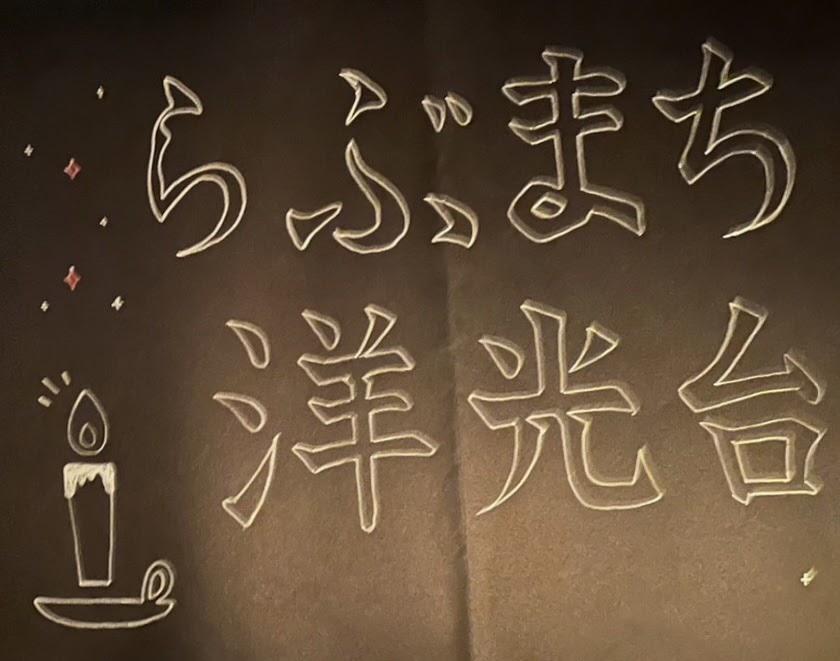 らぶまち
洋光台